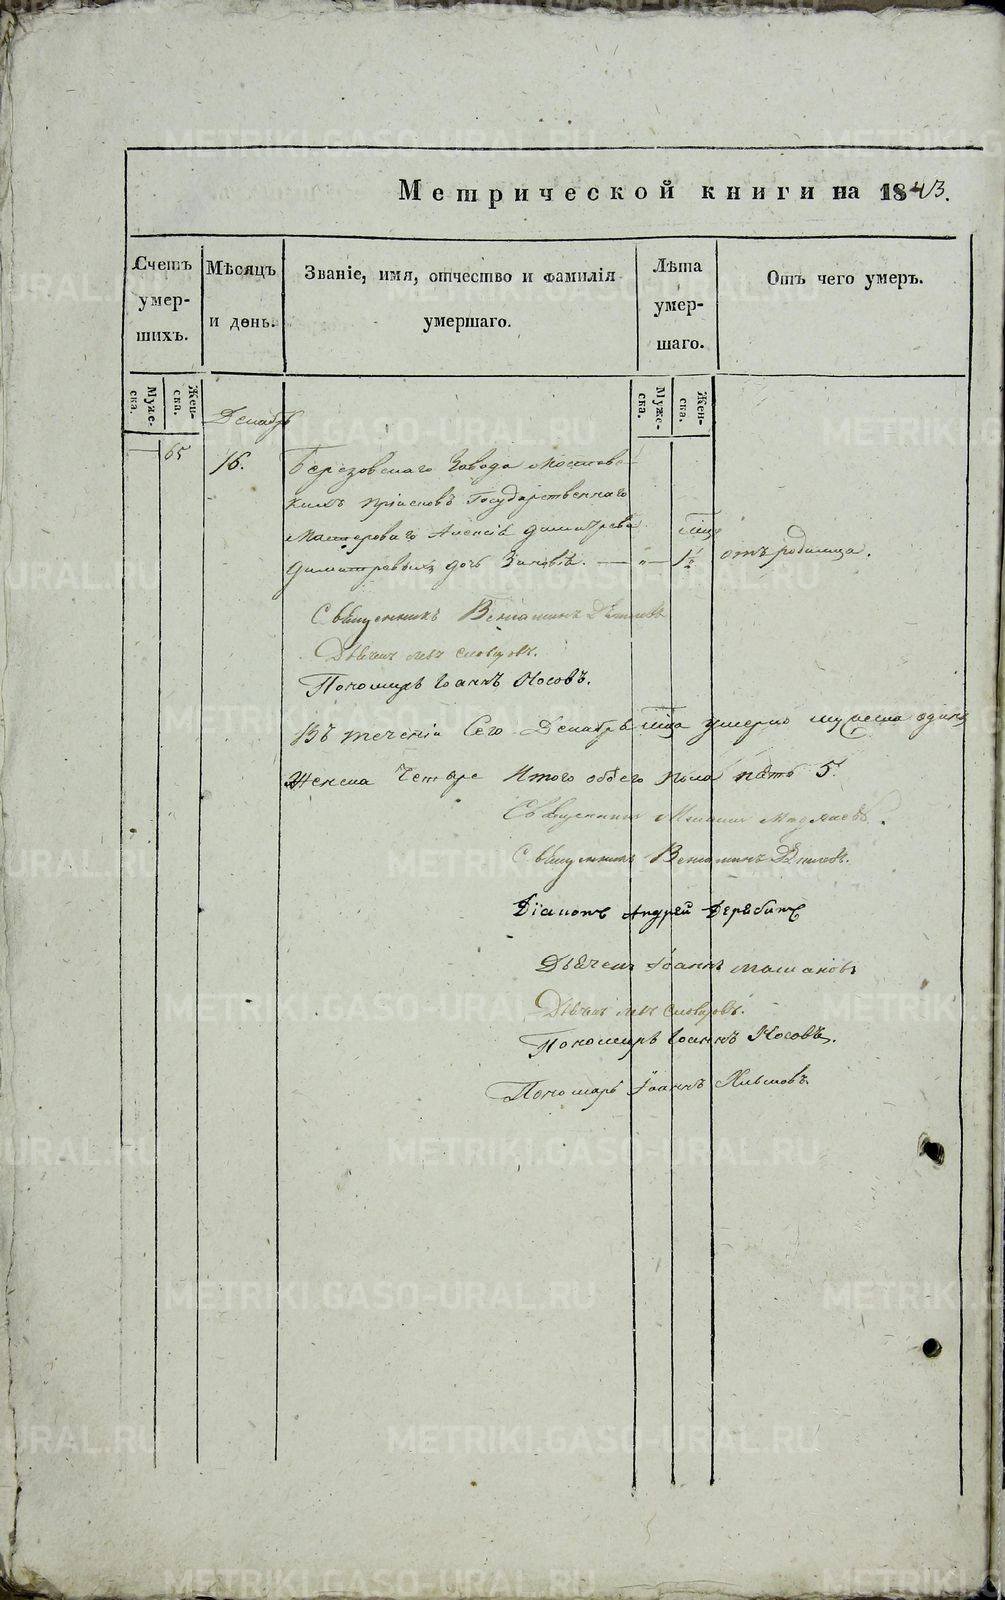 Метрической книги на 1843.
Счетъ умершихъ.
Мѣсяцъ и день.
Званіе, имя, отчество и фамилія умершаго.
Лѣта умершаго.
Отъ чего умеръ.
Мужеска.
Женска.
Мужеска.
Женска.
Декабрь
65
16.
Березовскаго Завода
Государственнаго
Мастероваго Алексѣя Димитріева
мѣс
дочь 1½ отъ родимца.
Священникъ Веніаминъ
Дьячекъ Левъ Словцовъ.
Пономарь Іоаннъ Носовъ.
Въ теченіи Сего Декабря мѣсяца умерло мужеска одинъ
Женска Четыре Итого обоего пола пять 5.
Священникъ
Священникъ Веніаминъ
Діаконъ Андрей Дерябинъ
Дьячекъ Іоаннъ
Дьячекъ Левъ Словцовъ.
Пономарь Іоаннъ Носовъ.
Пономарь Іоаннъ
METRIKI.GASO-URAL.RU